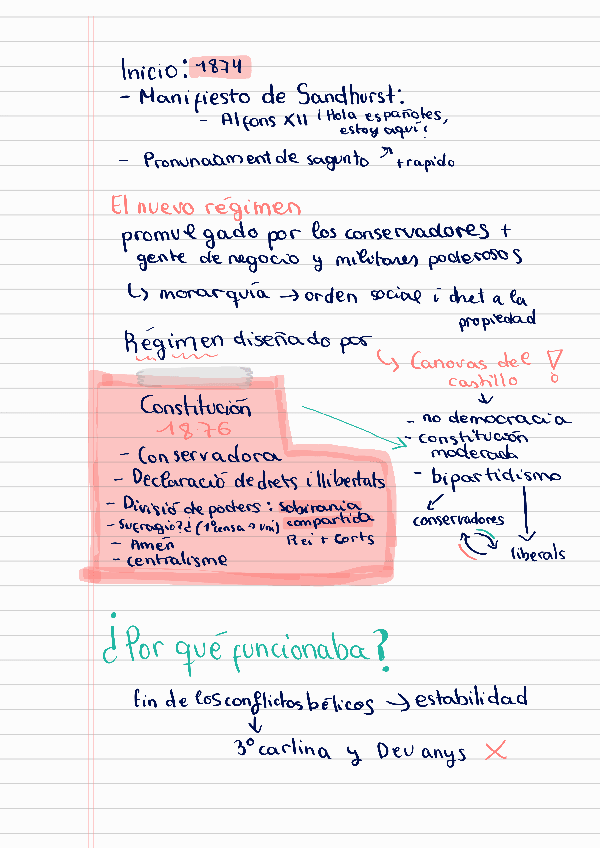 Inicio: 1874
- Manifiesto de Sandhurst:
- Alfons XII ¡Hola españoles,
estoy aquí!
- Pronunciament de sagunto ↗ + rapido
El nuevo régimen
promulgado por los conservadores +
gente de negocio y militares poderosos
↳ monarquía → orden social i dret a la
propiedad
Régimen diseñado por
↳ Canovas del
castillo !
Constitución
1876
- Conservadora
- Declaració de drets i llibertats
- Divisió de poders: sobirania
- Sufragio?¿ (1º censa → uni) compartida
Rei + Corts
- Amén
- centralisme
- no democracia
- constitución
moderada
- bipartidismo
conservadores
liberals
¿Por qué funcionaba?
fin de los conflictos bélicos → estabilidad
3º carlina y Deu anys X